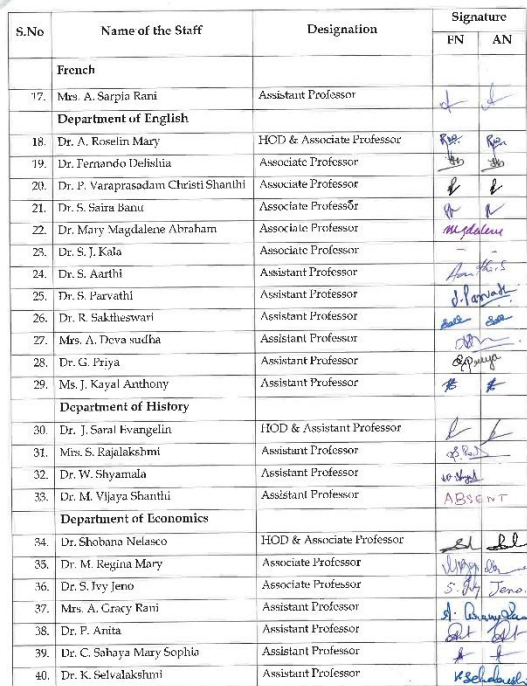 S.No Name of the Staff Designation Signature
FN AN
French
17. Mrs. A. Sarpia Rani Assistant Professor
Department of English
18. Dr. A. Roselin Mary HOD & Associate Professor
19. Dr. Fernando Delishia Associate Professor
20. Dr. P. Varaprasadam Christi Shanthi Associate Professor
21. Dr. S. Saira Banu Associate Professor
22. Dr. Mary Magdalene Abraham Associate Professor Magdalene
23. Dr. S. J. Kala Associate Professor - -
24. Dr. S. Aarthi Assistant Professor
25. Dr. S. Parvathi Assistant Professor
26. Dr. R. Saktheswari Assistant Professor
27. Mrs. A. Deva sudha Assistant Professor
28. Dr. G. Priya Assistant Professor
29. Ms. J. Kayal Anthony Assistant Professor
Department of History
30. Dr. J. Saral Evangelin HOD & Assistant Professor
31. Mrs. S. Rajalakshmi Assistant Professor
32. Dr. W. Shyamala Assistant Professor
33. Dr. M. Vijaya Shanthi Assistant Professor ABSENT
Department of Economics
34. Dr. Shobana Nelasco HOD & Associate Professor
35. Dr. M. Regina Mary Associate Professor
36. Dr. S. Ivy Jeno Associate Professor S. Ivy Jeno.
37. Mrs. A. Gracy Rani Assistant Professor
38. Dr. P. Anita Assistant Professor
39. Dr. C. Sahaya Mary Sophia Assistant Professor
40. Dr. K. Selvalakshmi Assistant Professor